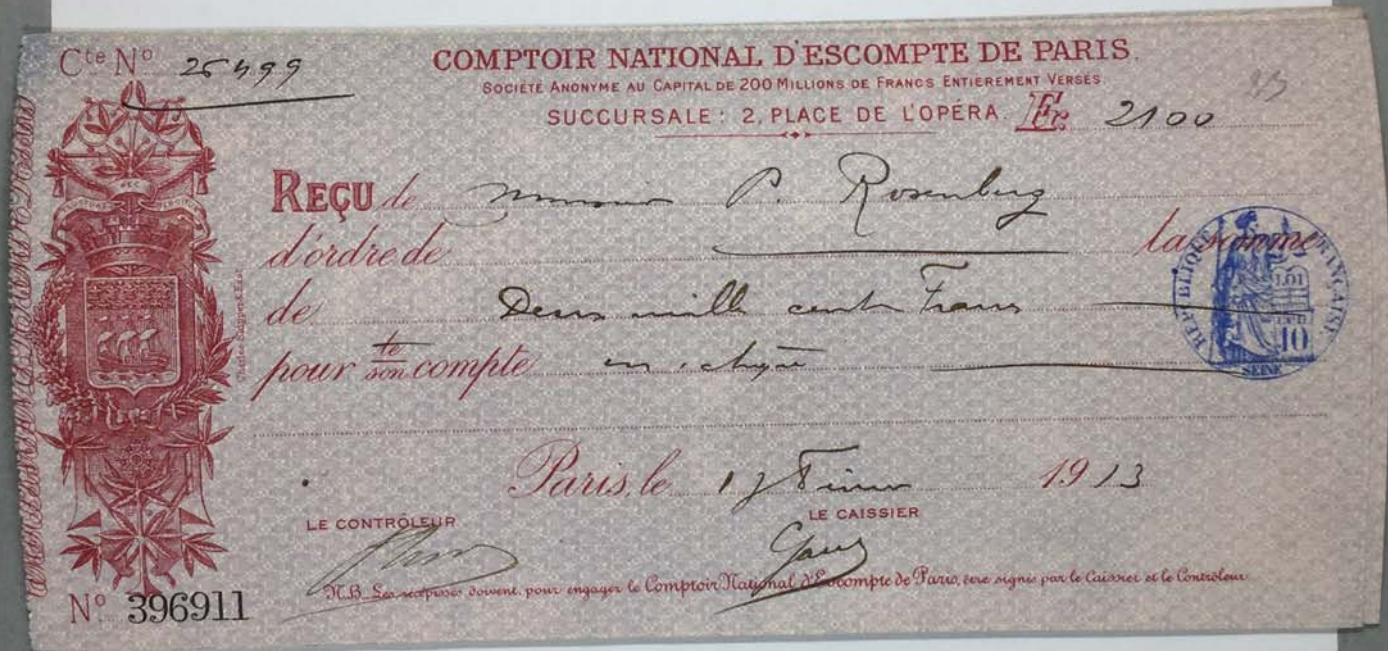 Cte No 25499
COMPTOIR NATIONAL D'ESCOMPTE DE PARIS.
SOCIÉTÉ ANONYME AU CAPITAL DE 200 MILLIONS DE FRANCS ENTIEREMENT VERSÉS.
SUCCURSALE: 2, PLACE DE L'OPÉRA. Fr. 2100
REÇU de Monsieur P. Rosenberg
d'ordre de la somme
de Deux mille cents Francs
pour te son compte en
Paris, le 17 Février 1913
LE CONTRÔLEUR LE CAISSIER
N.B. Les récépissés doivent, pour engager le Comptoir National d'Escompte de Paris, être signés par le Caissier et le Contrôleur
No 396911
RÉPUBLIQUE FRANÇAISE
LOI
10
SEINE